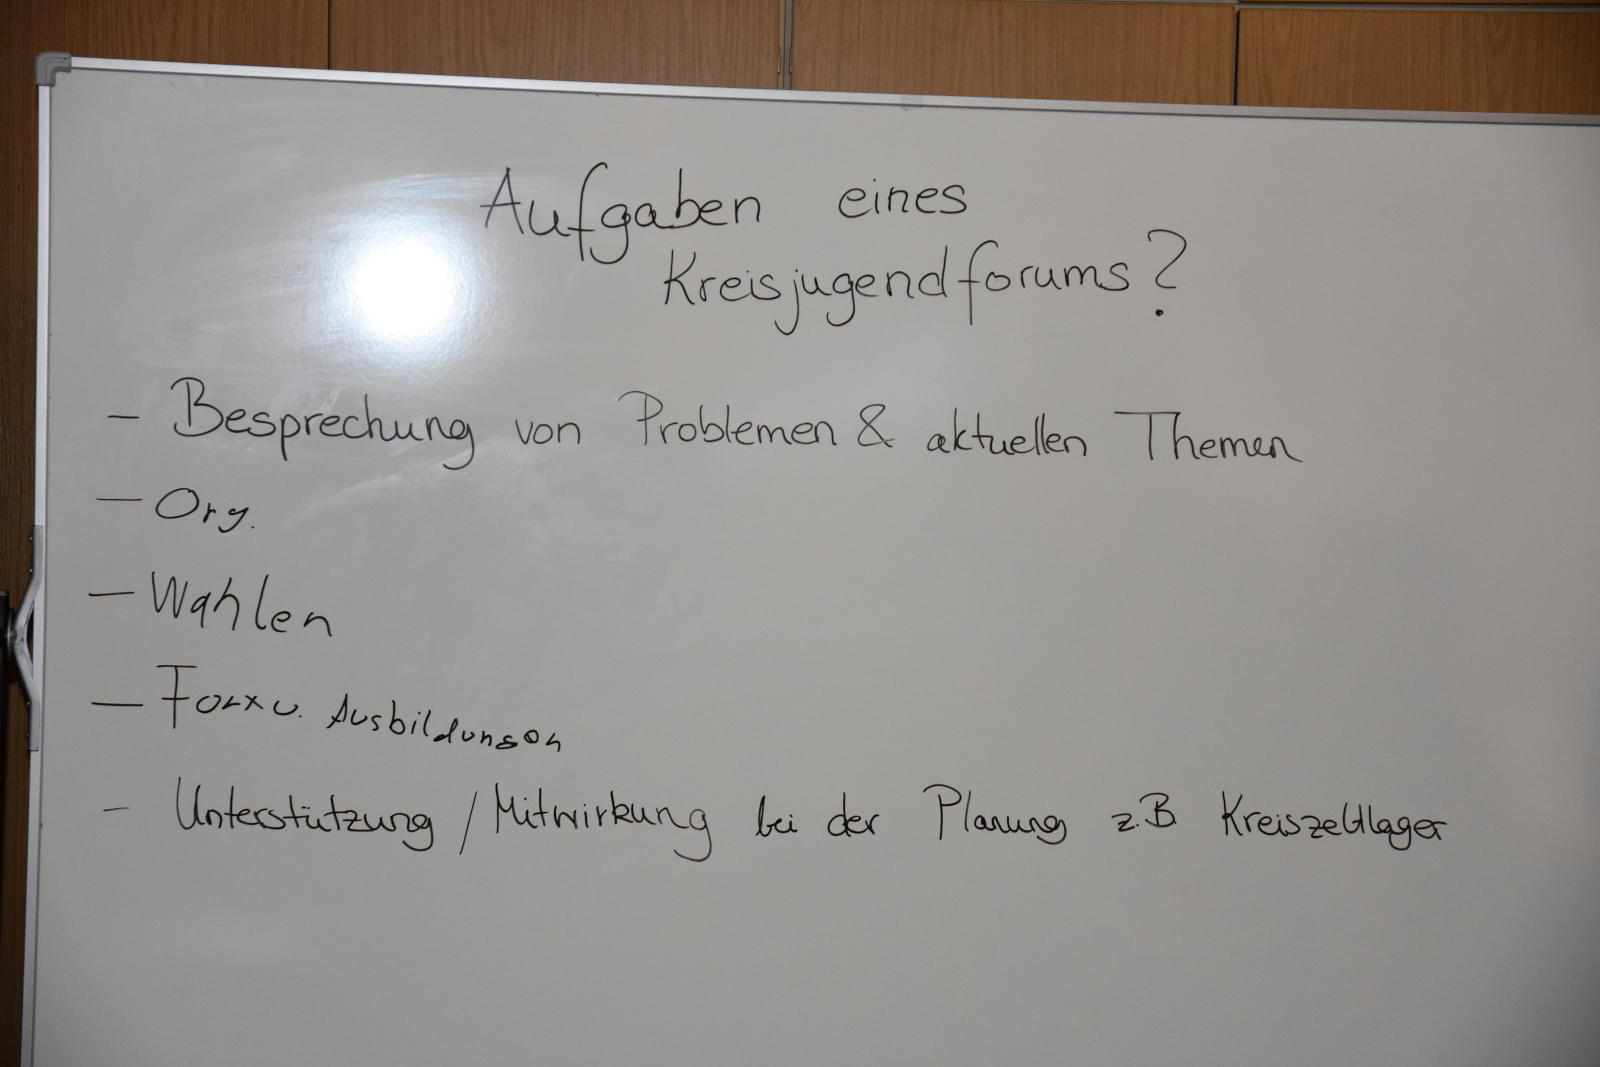 Aufgaben eines
Kreisjugendforums?
- Besprechung von Problemen & aktuellen Themen
- Org.
- Wahlen
- u. Ausbildungen
- Unterstützung / Mitwirkung bei der Planung z.B. Kreiszeltlager